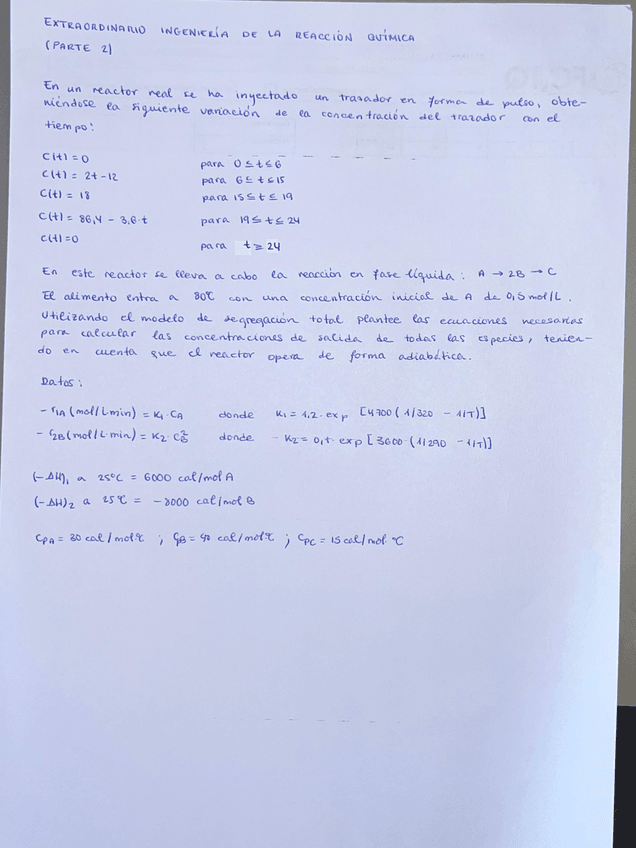 EXTRAORDINARIO INGENIERÍA DE LA REACCIÓN QUÍMICA
(PARTE 2)
En un reactor real se ha inyectado un trazador en forma de pulso, obte-
niéndose la siguiente variación de la concentración del trazador con el
tiempo:
C(t) = 0 para 0 ≤ t ≤ 6
C(t) = 2t - 12 para 6 ≤ t ≤ 15
C(t) = 18 para 15 ≤ t ≤ 19
C(t) = 86,4 - 3,6·t para 19 ≤ t ≤ 24
C(t) = 0 para t ≥ 24
En este reactor se lleva a cabo la reacción en fase líquida: A → 2B → C
El alimento entra a 80℃ con una concentración inicial de A de 0,5 mol/L.
Utilizando el modelo de segregación total plantee las ecuaciones necesarias
para calcular las concentraciones de salida de todas las especies, tenien-
do en cuenta que el reactor opera de forma adiabática.
Datos:
- r1A (mol/L·min) = K1·CA donde K1 = 1,2·exp [4700 (1/320 - 1/T)]
- r2B (mol/L·min) = K2·CB² donde - K2 = 0,1·exp [3600·(1/290 - 1/T)]
(-ΔH)1 a 25ºC = 6000 cal/mol A
(-ΔH)2 a 25℃ = -8000 cal/mol B
CPA = 80 cal/mol℃ ; CPB = 40 cal/mol℃ ; CPC = 15 cal/mol ℃